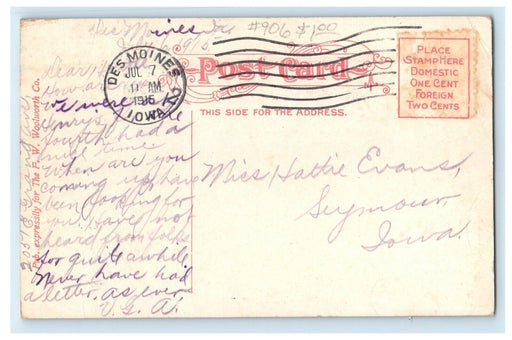 Des Moines Ia
#906 $1.00
DES MOINES
JUL 7
11 AM
1915
IOWA
Post Card
THIS SIDE FOR THE ADDRESS.
PLACE
STAMP HERE
DOMESTIC
ONE CENT
FOREIGN
TWO CENTS
Pub. expressly for The F. W. Woolworth Co.
Dear
How are
We were
Henrys
fourth had a
nice time
When are you
coming up have
been looking for
you. Have not
heard from folks
for quite awhile
Never have had
a letter. as ever.
V. G. A.
Miss Hattie Evans,
Seymour
Iowa.